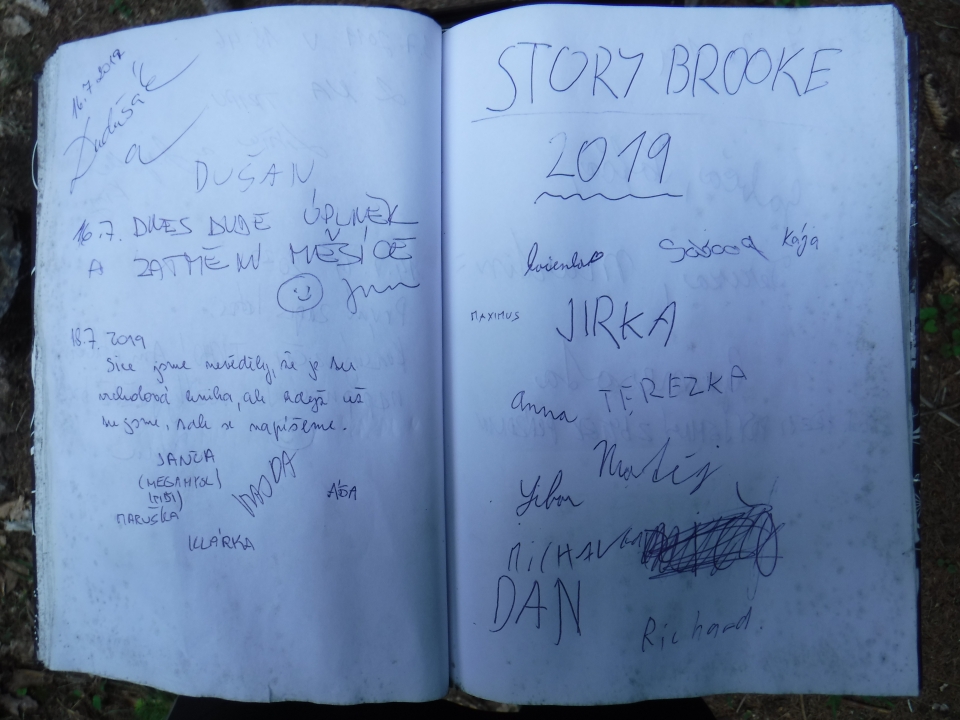 16.7.2019
Dudušák
a
DUŠAN
16.7. DNES BUDE ÚPLNĚK
A ZATMĚNÍ MĚSÍCE
18.7.2019
Sice jsme nevěděly, že je tu
vrcholová kniha, ale když už
tu jsme, tak se napíšeme.
JANČA
(MEGAMYSL)
MAJDA
ÁĎA
MARUŠKA
KLÁRKA
STORY BROOKE
2019
Kája
MAXIMUS
JIRKA
Anna
TEREZKA
Matěj
Libor
MICHAL
DAN
Richard.